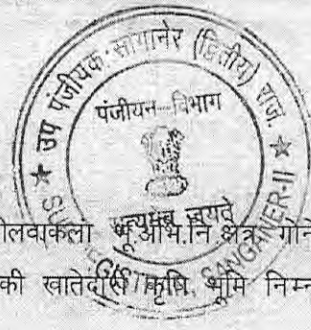 उप पंजीयक सांगानेर (द्वितीय) राज.
पंजीयन विभाग
सत्यमेव जयते
SUB REGISTRAR, SANGANER-II
भू.अभि.नि.क्षेत्र
की खातेदारी कृषि भूमि निम्न